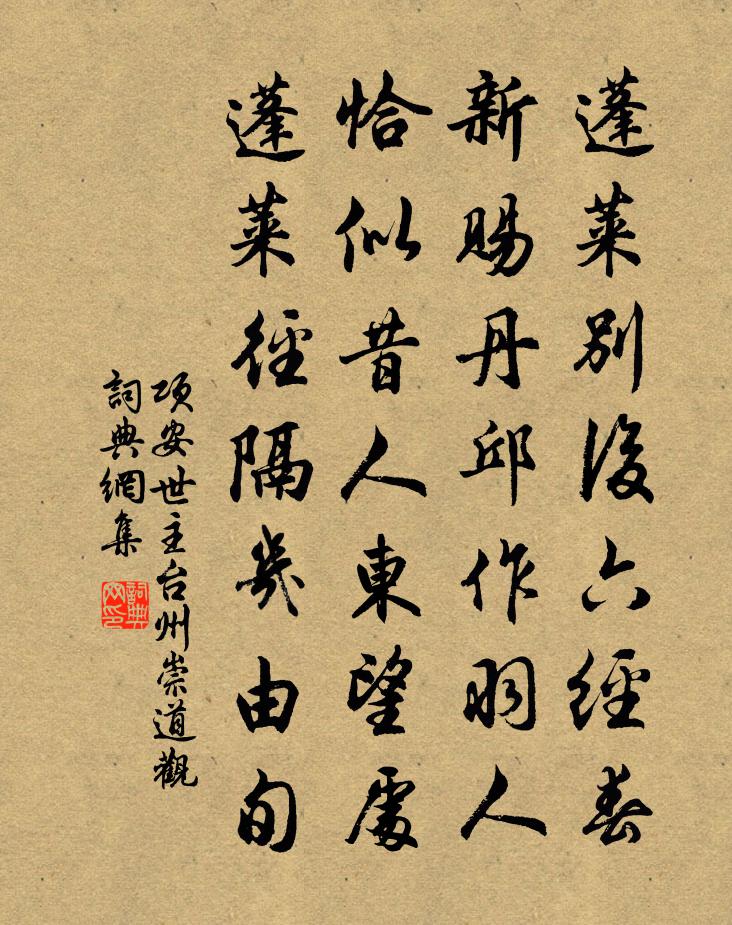 蓬莱別後六經春
新賜丹邱作羽人
恰似昔人東望處
蓬莱徑隔幾由旬
項安世主台州崇道觀
詞典網集
詞典
网印